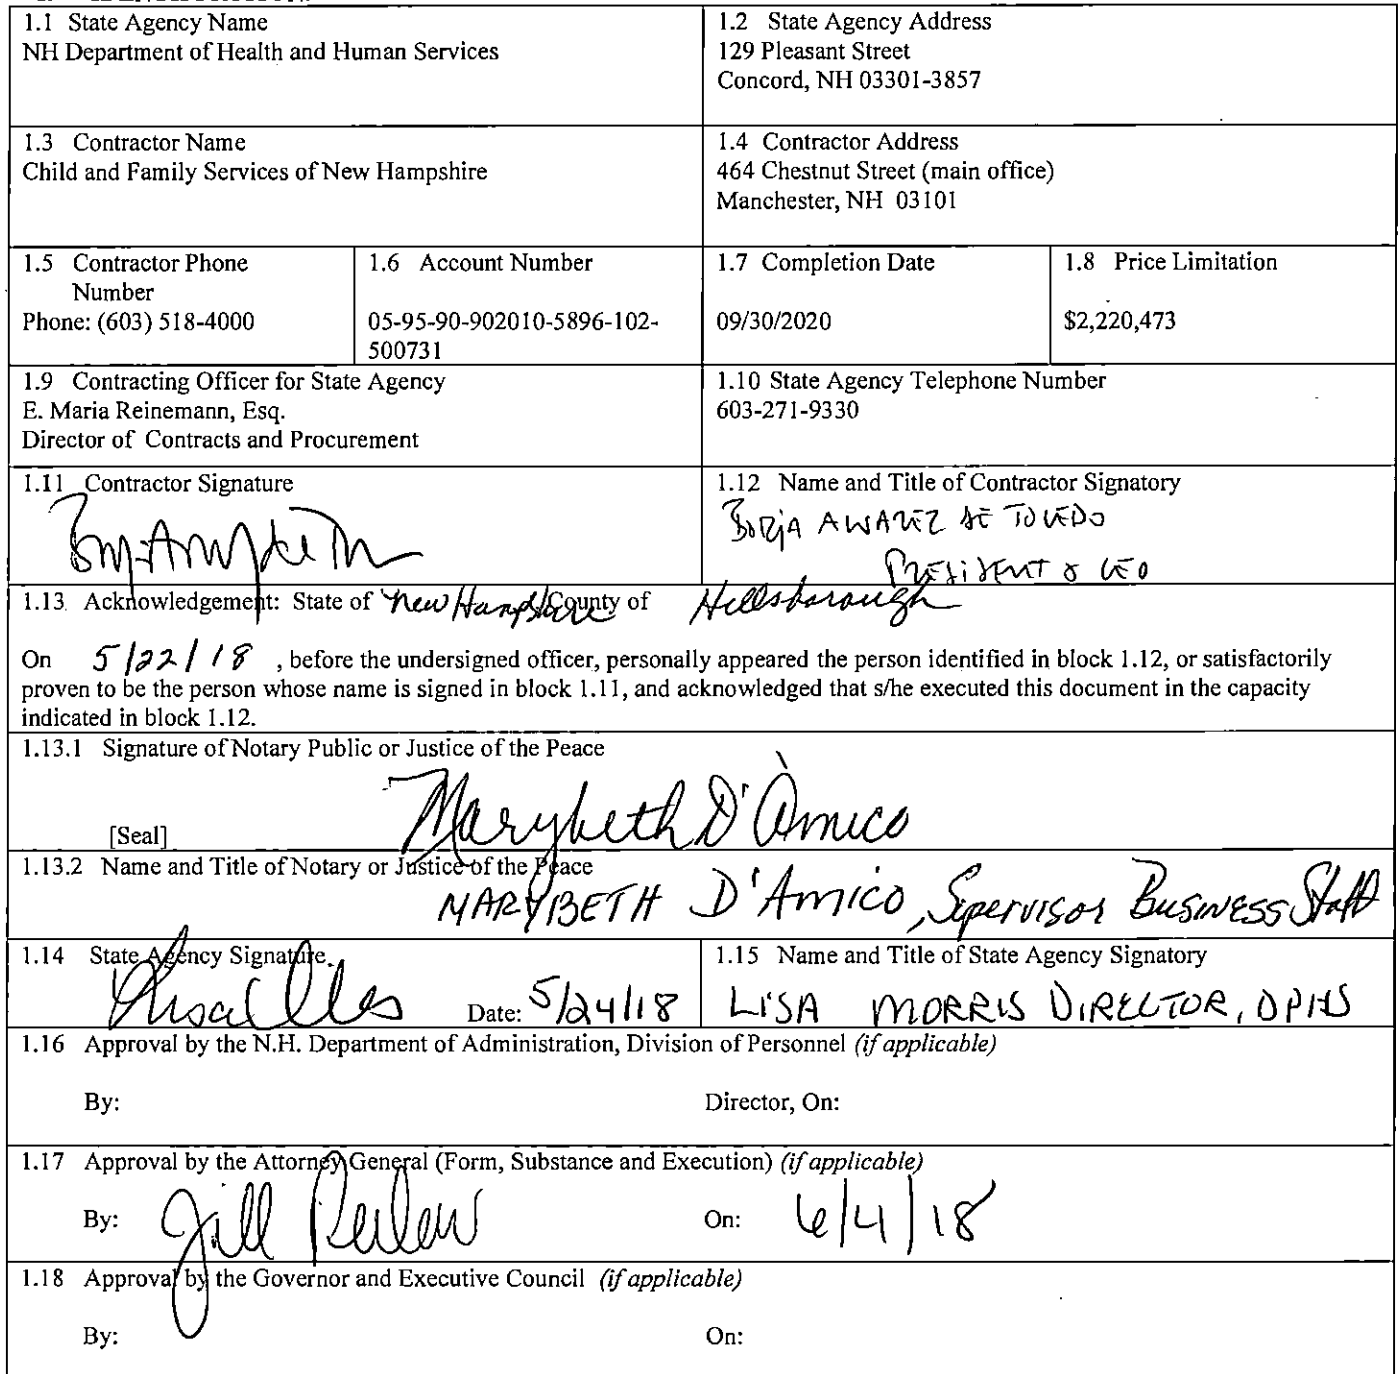 1.1 State Agency Name
NH Department of Health and Human Services
1.2 State Agency Address
129 Pleasant Street
Concord, NH 03301-3857
1.3 Contractor Name
Child and Family Services of New Hampshire
1.4 Contractor Address
464 Chestnut Street (main office)
Manchester, NH 03101
1.5 Contractor Phone
Number
Phone: (603) 518-4000
1.6 Account Number
05-95-90-902010-5896-102-
500731
1.7 Completion Date
09/30/2020
1.8 Price Limitation
$2,220,473
1.9 Contracting Officer for State Agency
E. Maria Reinemann, Esq.
Director of Contracts and Procurement
1.10 State Agency Telephone Number
603-271-9330
1.11 Contractor Signature
1.12 Name and Title of Contractor Signatory
Borja Alvarez de Toledo
President & CEO
1.13 Acknowledgement: State of New Hampshire County of Hillsborough
On 5/22/18 , before the undersigned officer, personally appeared the person identified in block 1.12, or satisfactorily
proven to be the person whose name is signed in block 1.11, and acknowledged that s/he executed this document in the capacity
indicated in block 1.12.
1.13.1 Signature of Notary Public or Justice of the Peace
Marybeth D'Amico
[Seal]
1.13.2 Name and Title of Notary or Justice of the Peace
MARYBETH D'Amico, Supervisor Business Staff
1.14 State Agency Signature
Date: 5/24/18
1.15 Name and Title of State Agency Signatory
LISA MORRIS DIRECTOR, DPHS
1.16 Approval by the N.H. Department of Administration, Division of Personnel (if applicable)
By: Director, On:
1.17 Approval by the Attorney General (Form, Substance and Execution) (if applicable)
By: Jill On: 6/4/18
1.18 Approval by the Governor and Executive Council (if applicable)
By: On: